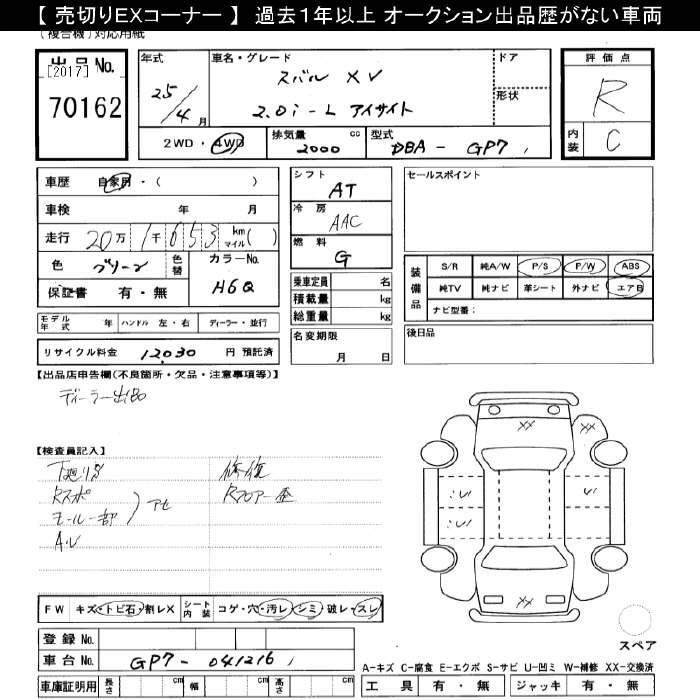 【 売切りEXコーナー 】 過去1年以上 オークション出品歴がない車両
(複合機)対応用紙
出品No.
[2017]
70162
年式
25/4月
車名・グレード
スバル XV
2.0i-L アイサイト
ドア
形状
評価点
R
内装
C
2WD・4WD
排気量
2000 cc
型式
DBA - GP7
車歴 自家用・( )
車検 年 月
走行 20万 1千 653 km マイル( )
色 グリーン
色替
カラーNo.
H6Q
保証書 有・無
シフト
AT
冷房
AAC
燃料
G
乗車定員 名
積載量 kg
総重量 kg
名変期限
月 日
セールスポイント
装備品
S/R 純A/W P/S P/W ABS
純TV 純ナビ 革シート 外ナビ エアB
ナビ型番:
後日品
モデル年式 年 ハンドル 左・右 ディーラー・並行
リサイクル料金 12,030 円 預託済
【出品店申告欄(不良箇所・欠品・注意事項等)】
ディーラー出品
【検査員記入】
下廻りS
Rスポ
モール一部
アセ
A・U
修復
Rフロアー歪
XX
XX
XX
FW キズ・トビ石・割レX
シート内装 コゲ・穴・汚レ・シミ・破レ・スレ
登録No.
車台No. GP7-041216
車庫証明用 長さ cm 幅 cm 高さ cm
スペア
A-キズ C-腐食 E-エクボ S-サビ U-凹ミ W-補修 XX-交換済
工具 有・無 ジャッキ 有・無